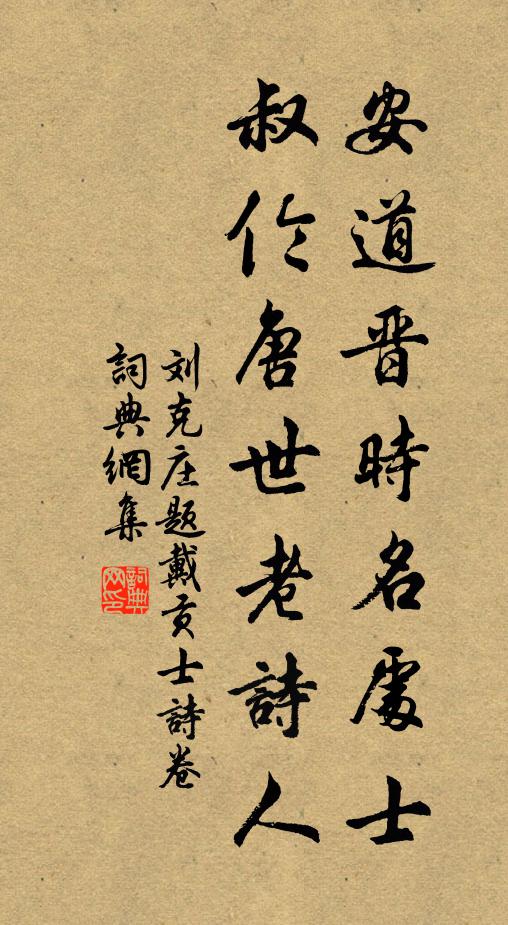 安道晋時名處士
叔伦唐世老詩人
刘克庄题戴贡士詩卷
詞典網集
詞典網印